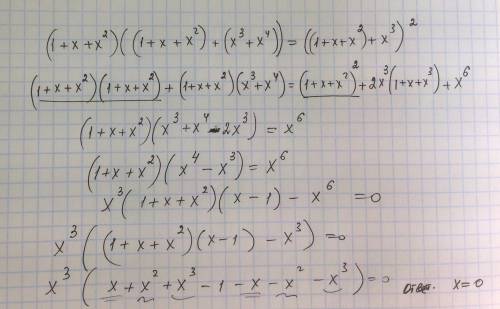 (1+x+x²)((1+x+x²)+(x³+x⁴))=((1+x+x²)+x³)²
(1+x+x²)(1+x+x²)+(1+x+x²)(x³+x⁴)=(1+x+x²)²+2x³(1+x+x³)+x⁶
(1+x+x²)(x³+x⁴-2x³)=x⁶
(1+x+x²)(x⁴-x³)=x⁶
x³(1+x+x²)(x-1)-x⁶=0
x³((1+x+x²)(x-1)-x³)=0
x³(x+x²+x³-1-x-x²-x³)=0 Ответ. x=0